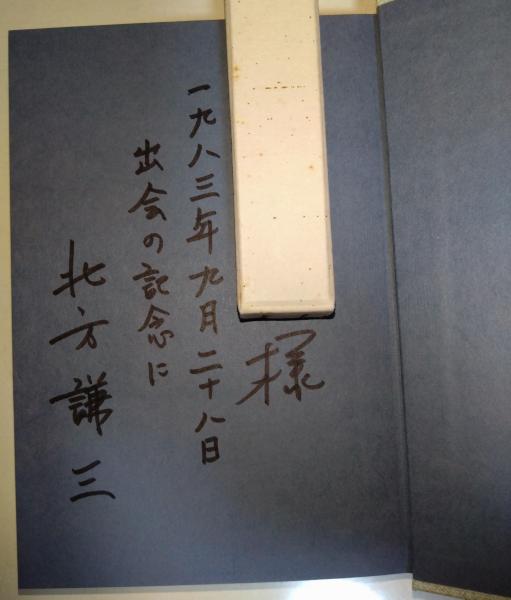 様
一九八三年九月二十八日
出会の記念に
北方謙三